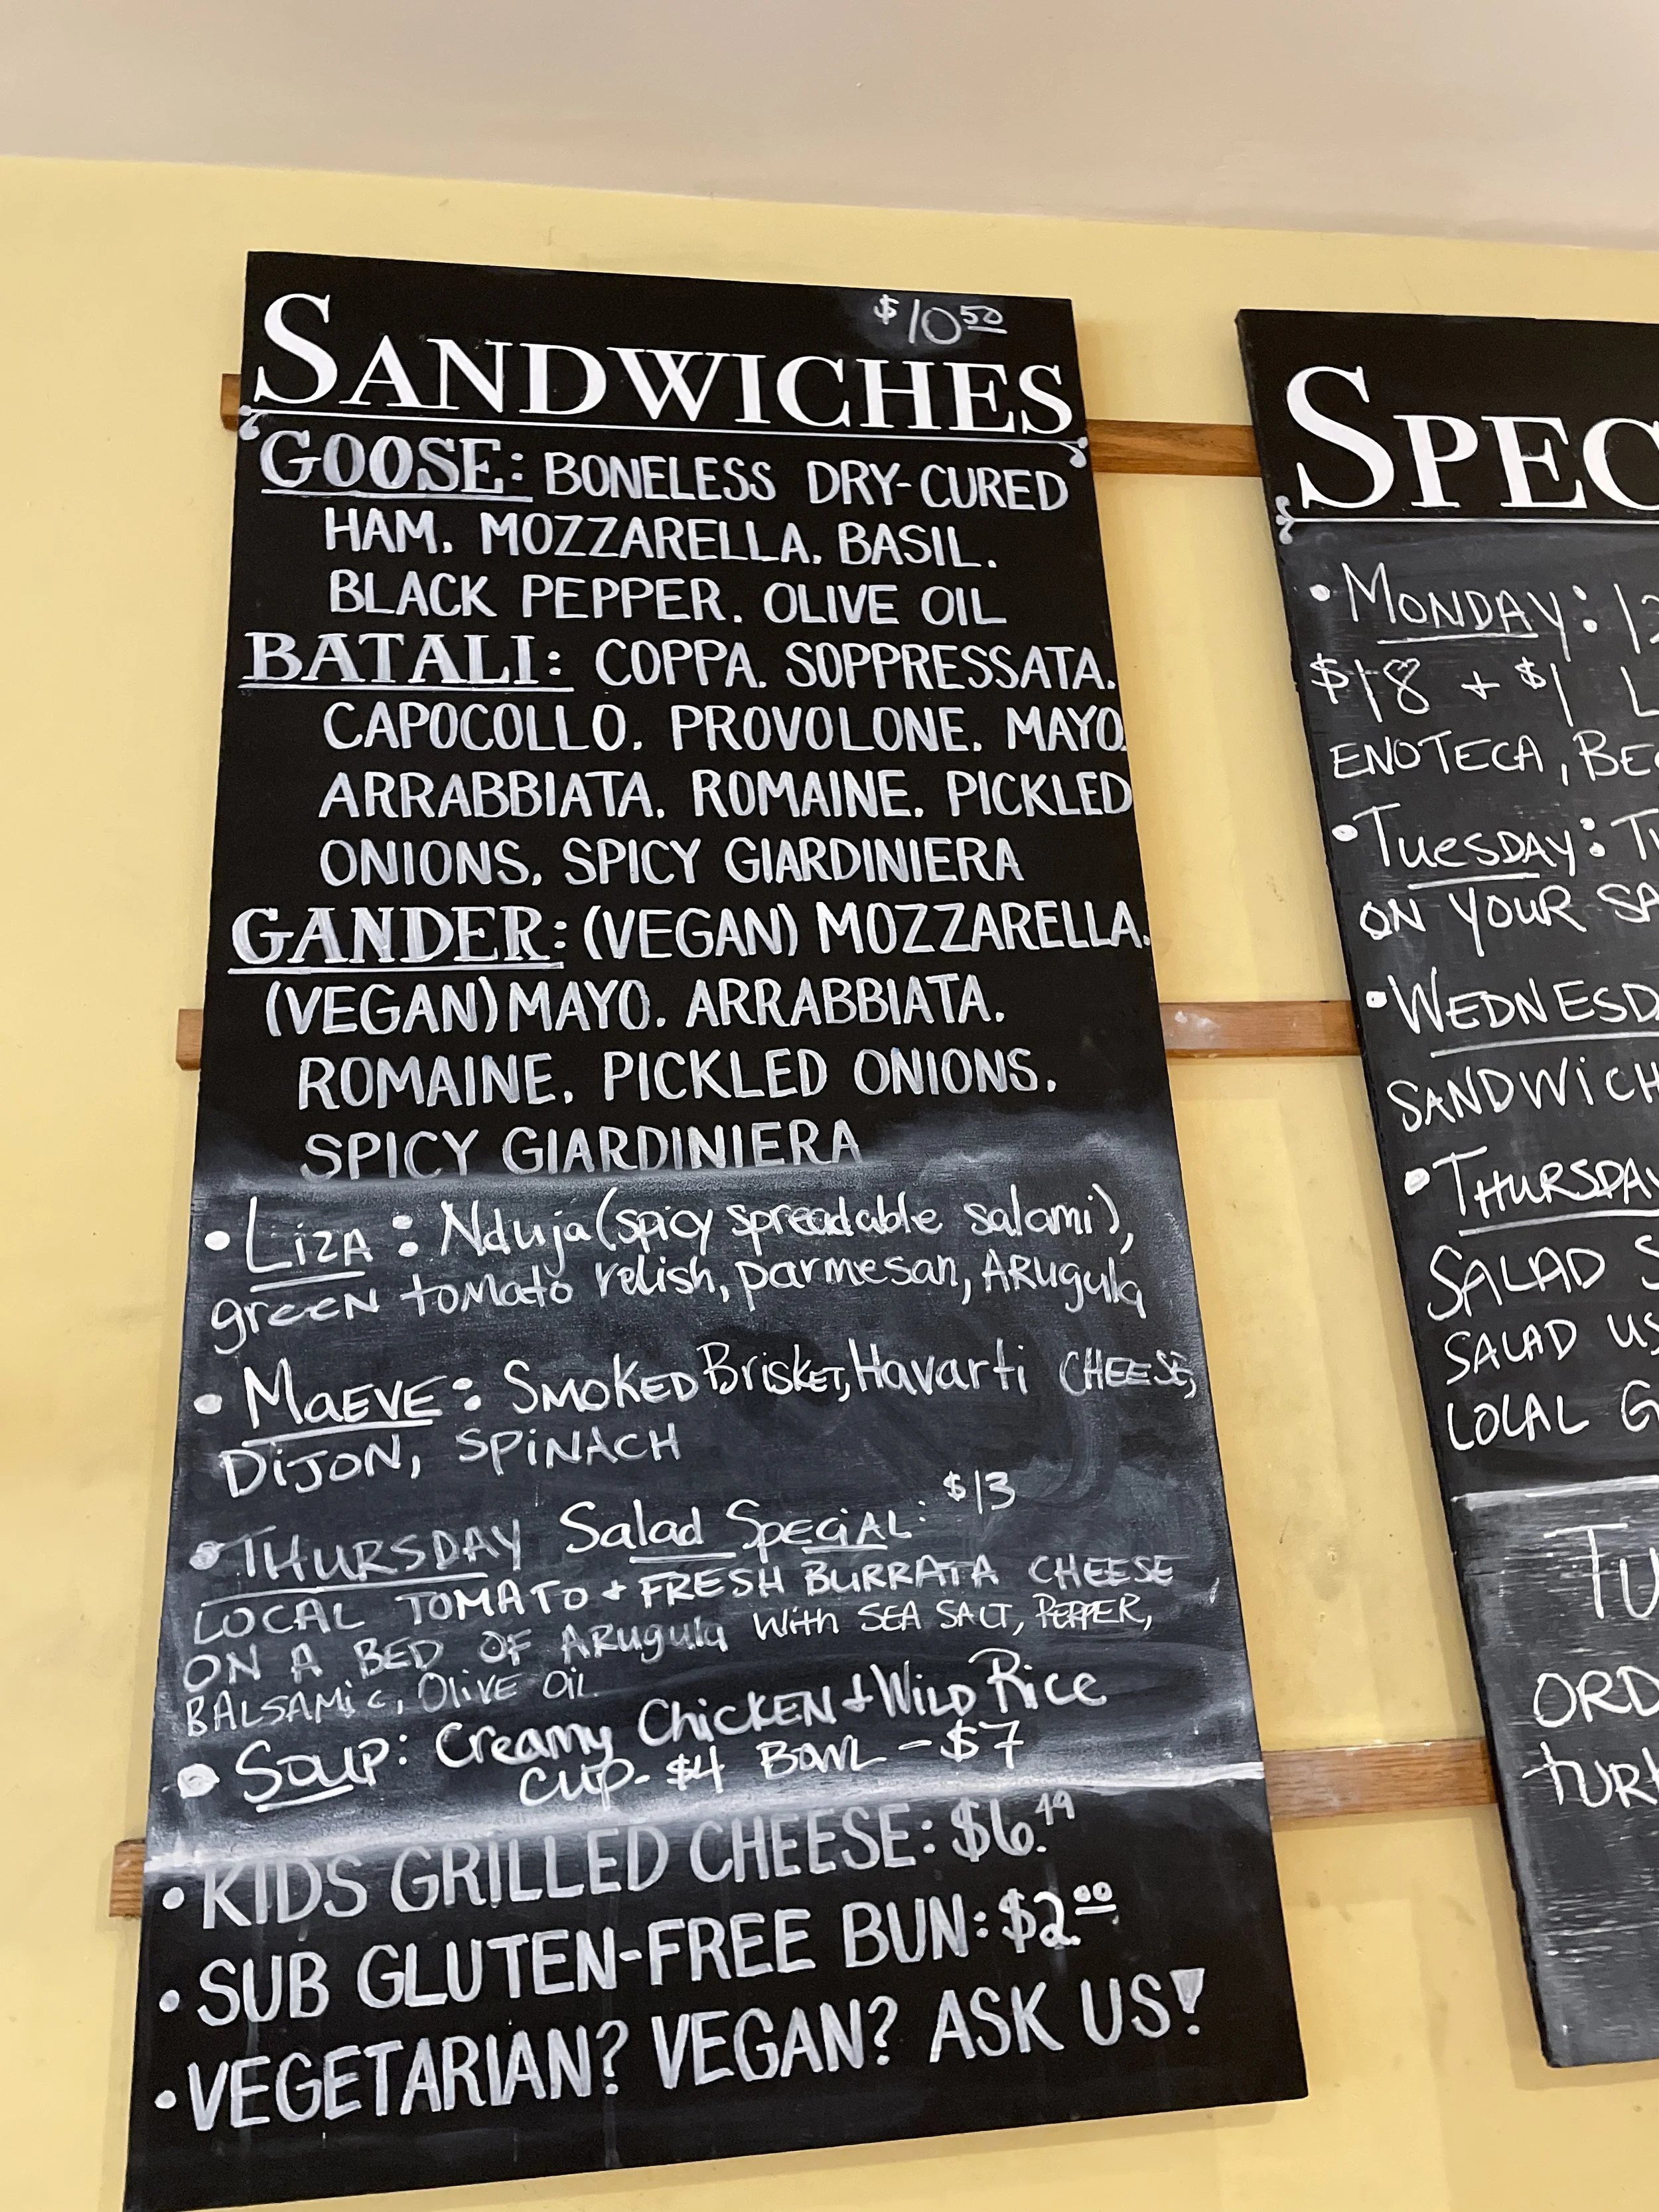 $10.50
SANDWICHES
GOOSE: BONELESS DRY-CURED
HAM. MOZZARELLA. BASIL.
BLACK PEPPER. OLIVE OIL
BATALI: COPPA. SOPPRESSATA.
CAPOCOLLO. PROVOLONE. MAYO.
ARRABBIATA. ROMAINE. PICKLED
ONIONS. SPICY GIARDINIERA
GANDER: (VEGAN) MOZZARELLA.
(VEGAN) MAYO. ARRABBIATA.
ROMAINE. PICKLED ONIONS.
SPICY GIARDINIERA
• LIZA: Nduja (spicy spreadable salami),
green tomato relish, parmesan, Arugula
• MAEVE: SMOKED Brisket, Havarti CHEESE,
DIJON, SPINACH
• THURSDAY Salad Special: $13
LOCAL TOMATO + FRESH BURRATA CHEESE
ON A BED OF Arugula With SEA SALT, PEPPER,
BALSAMIC, Olive Oil
• SOUP: Creamy Chicken + Wild Rice
CUP - $4 BOWL - $7
• KIDS GRILLED CHEESE: $6.49
• SUB GLUTEN-FREE BUN: $2.00
• VEGETARIAN? VEGAN? ASK US!
SPEC
• MONDAY: 12
$18 + $1 L
ENOTECA, BEC
• TUESDAY: TU
ON YOUR SA
• WEDNESDA
SANDWICH
• THURSDAY
SALAD S
SALAD US
LOCAL G
TU
ORD
TURK